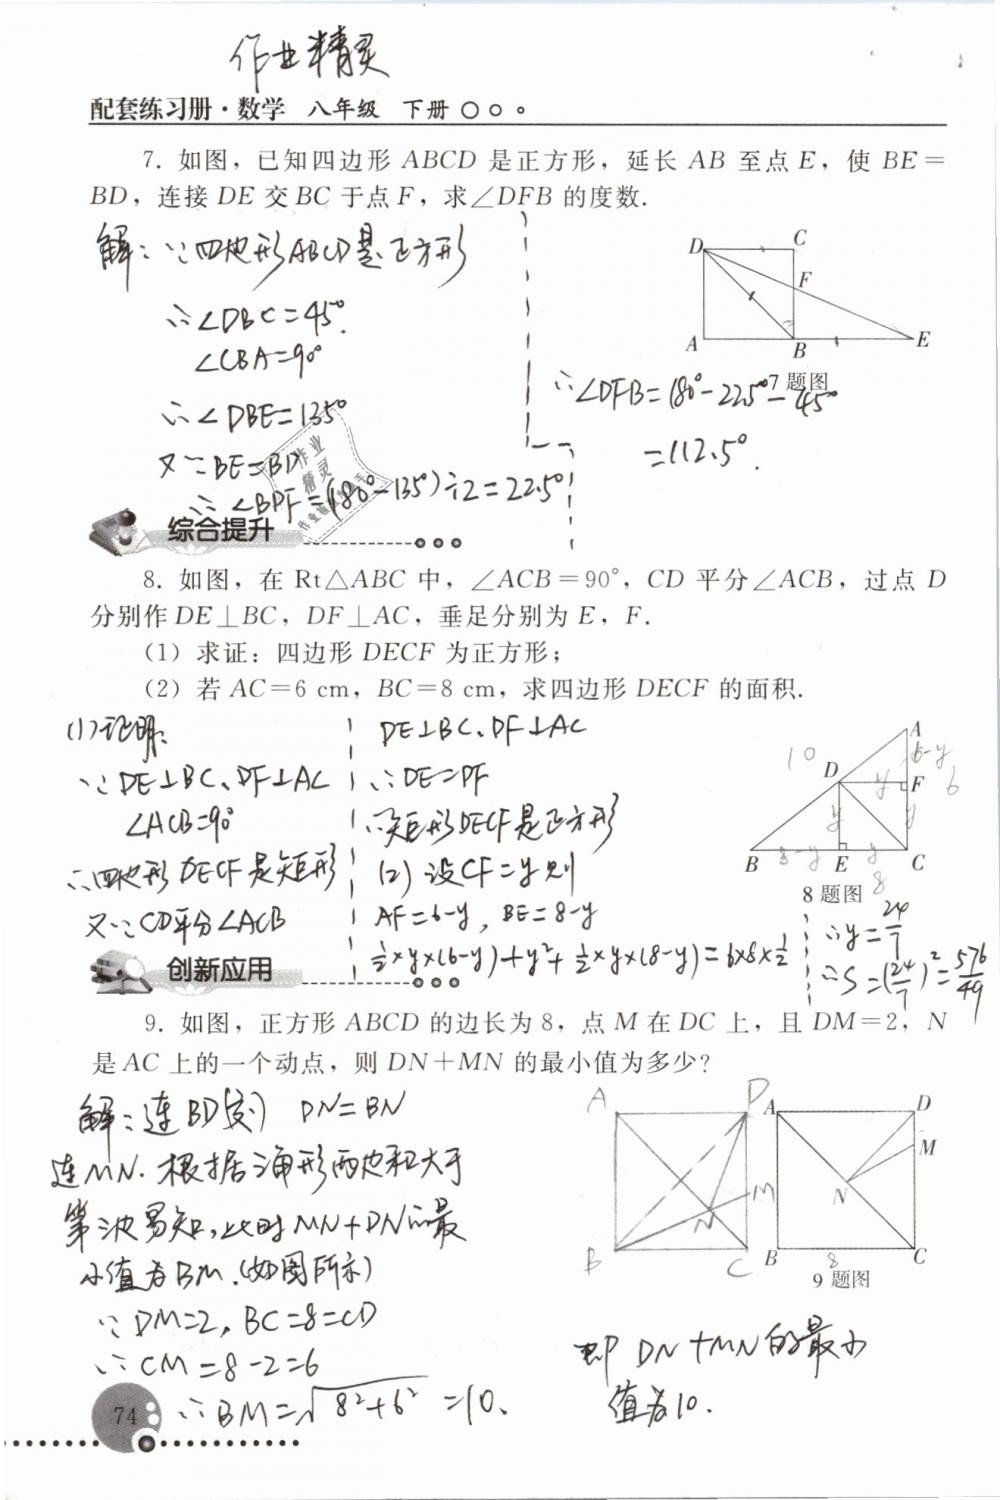 作业精灵
配套练习册·数学 八年级 下册
7. 如图，已知四边形 ABCD 是正方形，延长 AB 至点 E，使 BE=
BD，连接 DE 交 BC 于点 F，求∠DFB 的度数.
解：∵四边形ABCD是正方形
∴∠DBC=45°.
∠CBA=90°
∴∠DBE=135°
又∵BE=BD
∴∠BDF=(180°-135°)÷2=22.5°
D C
F
A B E
7 题图
∴∠DFB=180°-22.5°-45°
=112.5°.
作业
精灵
综合提升
8. 如图，在 Rt△ABC 中，∠ACB=90°，CD 平分∠ACB，过点 D
分别作 DE⊥BC，DF⊥AC，垂足分别为 E，F.
(1) 求证：四边形 DECF 为正方形；
(2) 若 AC=6 cm，BC=8 cm，求四边形 DECF 的面积.
(1)证明：
∵DE⊥BC、DF⊥AC
∠ACB=90°
∴四边形DECF是矩形
又∵CD平分∠ACB
DE⊥BC、DF⊥AC
∴DE=DF
∴矩形DECF是正方形
(2)设CF=y则
AF=6-y，BE=8-y
½×y×(6-y)+y²+½×y×(8-y)=6×8×½
A
10 6-y
D y F 6
y y
B 8-y E y C
8
8 题图
∴y=24/7
∴S=(24/7)²=576/49
创新应用
9. 如图，正方形 ABCD 的边长为 8，点 M 在 DC 上，且 DM=2，N
是 AC 上的一个动点，则 DN+MN 的最小值为多少?
解：连BD DN=BN
连MN. 根据三角形两边和大于
第三边易知，此时MN+DN的最
小值为BM.(如图所示)
∵DM=2，BC=8=CD
∴CM=8-2=6
∴BM=√8²+6²=10、
A D
M
N
B C
A D
M
N
B 8 C
9 题图
即 DN+MN的最小
值为10.
74